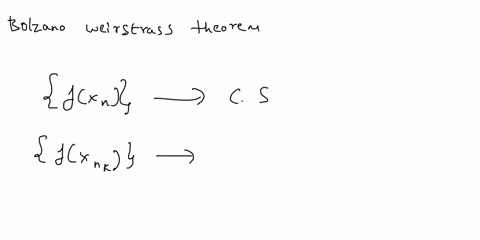 Bolzano weirstrass theorem
{f(xₙ)} → C. S
{f(xₙₖ)} →